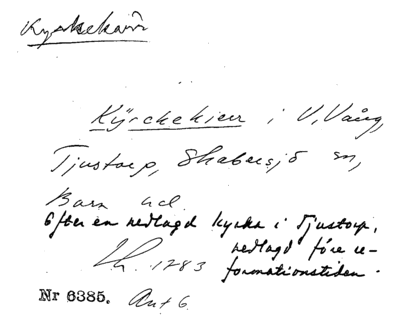 Kyrkekärr
Kÿrckekieer i V. Vång,
Tjustorp, Skabersjö sn,
Bara hd.
Efter en nedlagd kyrka i Tjustorp,
nedlagd före re-
formationstiden.
Lh. 1783
Nr 6385. Ant 6